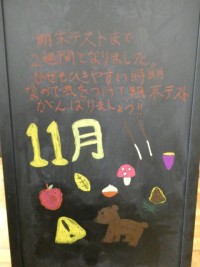 期末テストまで
2週間となりました。
かぜもひきやすい時期
なので気をつけて期末テスト
がんばりましょう!!
11月